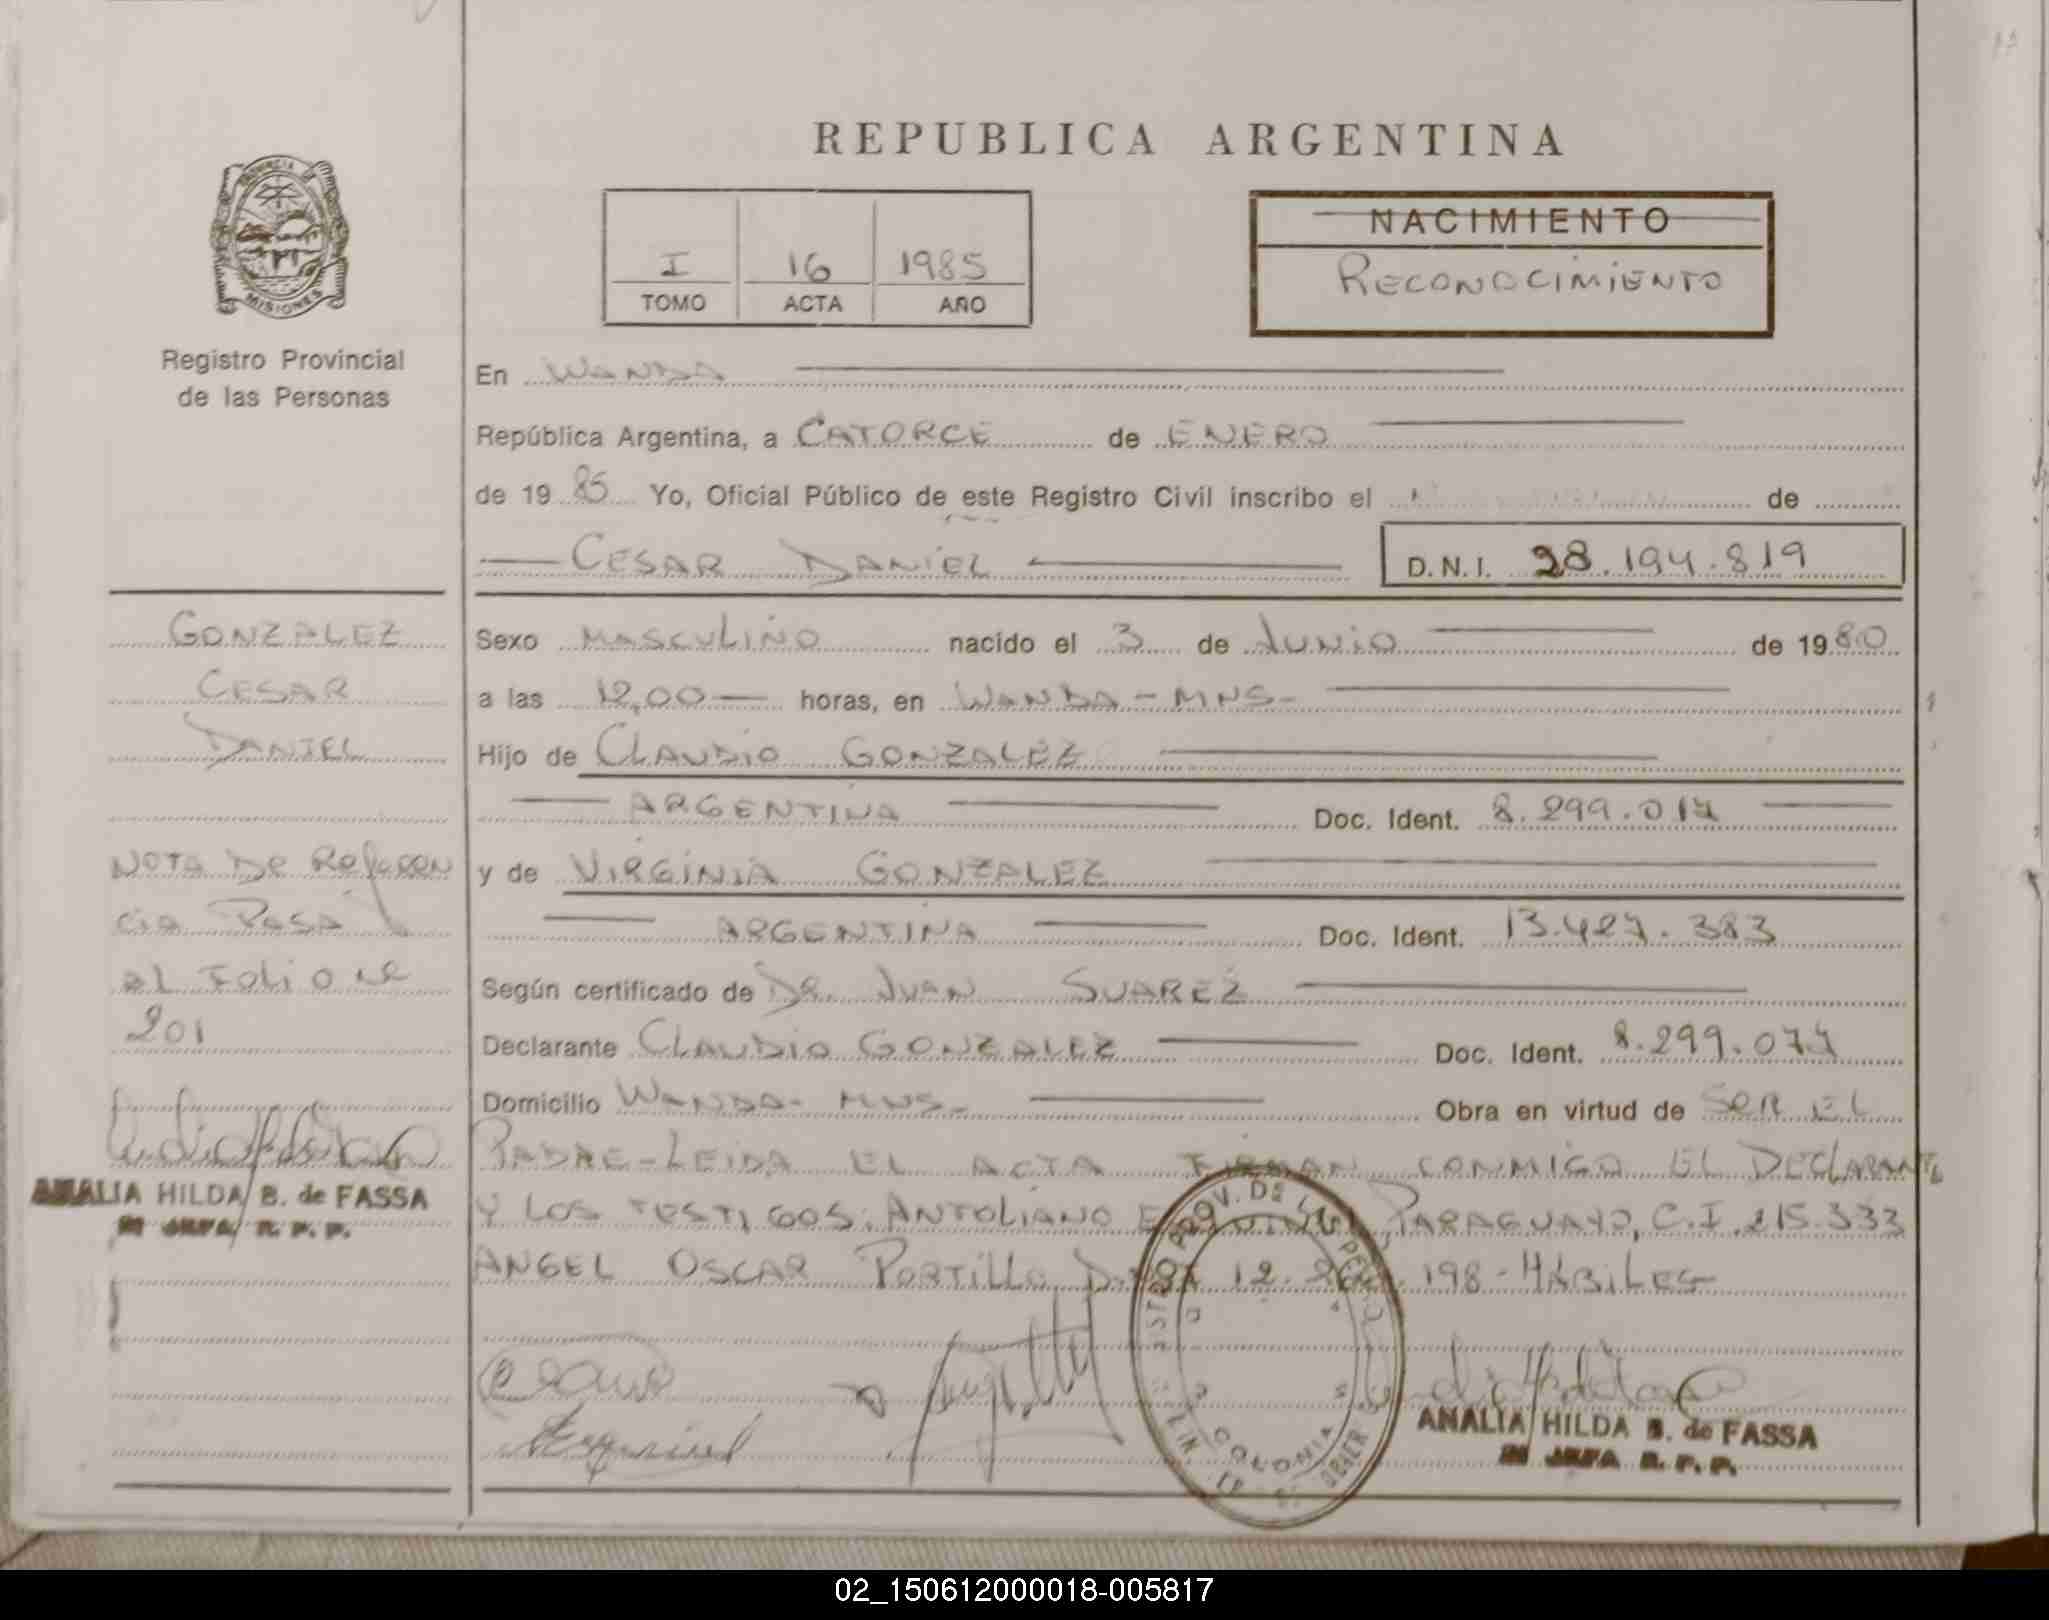 REPUBLICA ARGENTINA
PROVINCIA DE
MISIONES
Registro Provincial
de las Personas
I 16 1985
TOMO ACTA AÑO
NACIMIENTO
RECONOCIMIENTO
En WANDA
República Argentina, a CATORCE de ENERO
de 19 85 Yo, Oficial Público de este Registro Civil inscribo el de
CESAR DANIEL
D.N.I. 28.194.819
GONZALEZ
CESAR
DANIEL
Sexo MASCULINO nacido el 3 de JUNIO de 1980
a las 12,00 horas, en WANDA - MNS-
Hijo de CLAUDIO GONZALEZ
ARGENTINA Doc. Ident. 8.299.077
y de VIRGINIA GONZALEZ
ARGENTINA Doc. Ident. 13.427.383
Según certificado de DR. JUAN SUAREZ
Declarante CLAUDIO GONZALEZ Doc. Ident. 8.299.077
Domicilio WANDA- MNS- Obra en virtud de SER EL
PADRE-LEIDA EL ACTA FIRMAN CONMIGO EL DECLARANTE
Y LOS TESTIGOS: ANTOLIANO PARAGUAYO, C.I. 215.333
ANGEL OSCAR PORTILLO 12. 198-HÁBILES
NOTA DE REFEREN
CIA PASA
AL FOLIO Nº
201
ANALIA HILDA B. de FASSA
JEFA R. P. P.
COLONIA
ANALIA HILDA B. de FASSA
JEFA R. P. P.
02_150612000018-005817